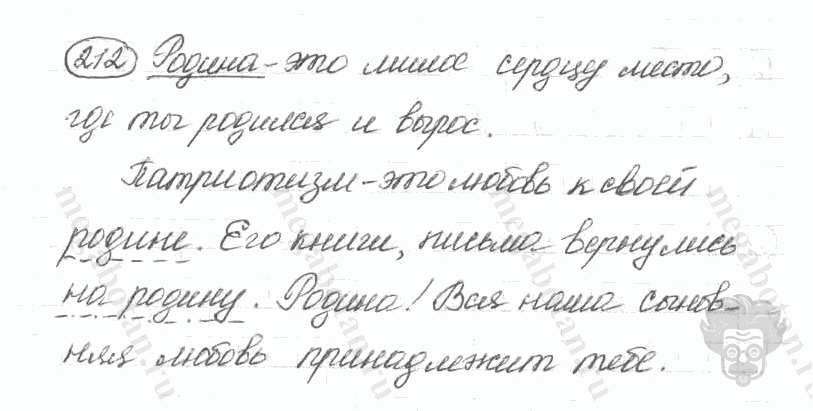 212 Родина - это милое сердцу место,
где ты родился и вырос.
Патриотизм - это любовь к своей
родине. Его книги, письма вернулись
на родину. Родина! Вся наша сынов-
няя любовь принадлежит тебе.
megabotan.ru
megabotan.ru
megabotan.ru
megabotan.ru